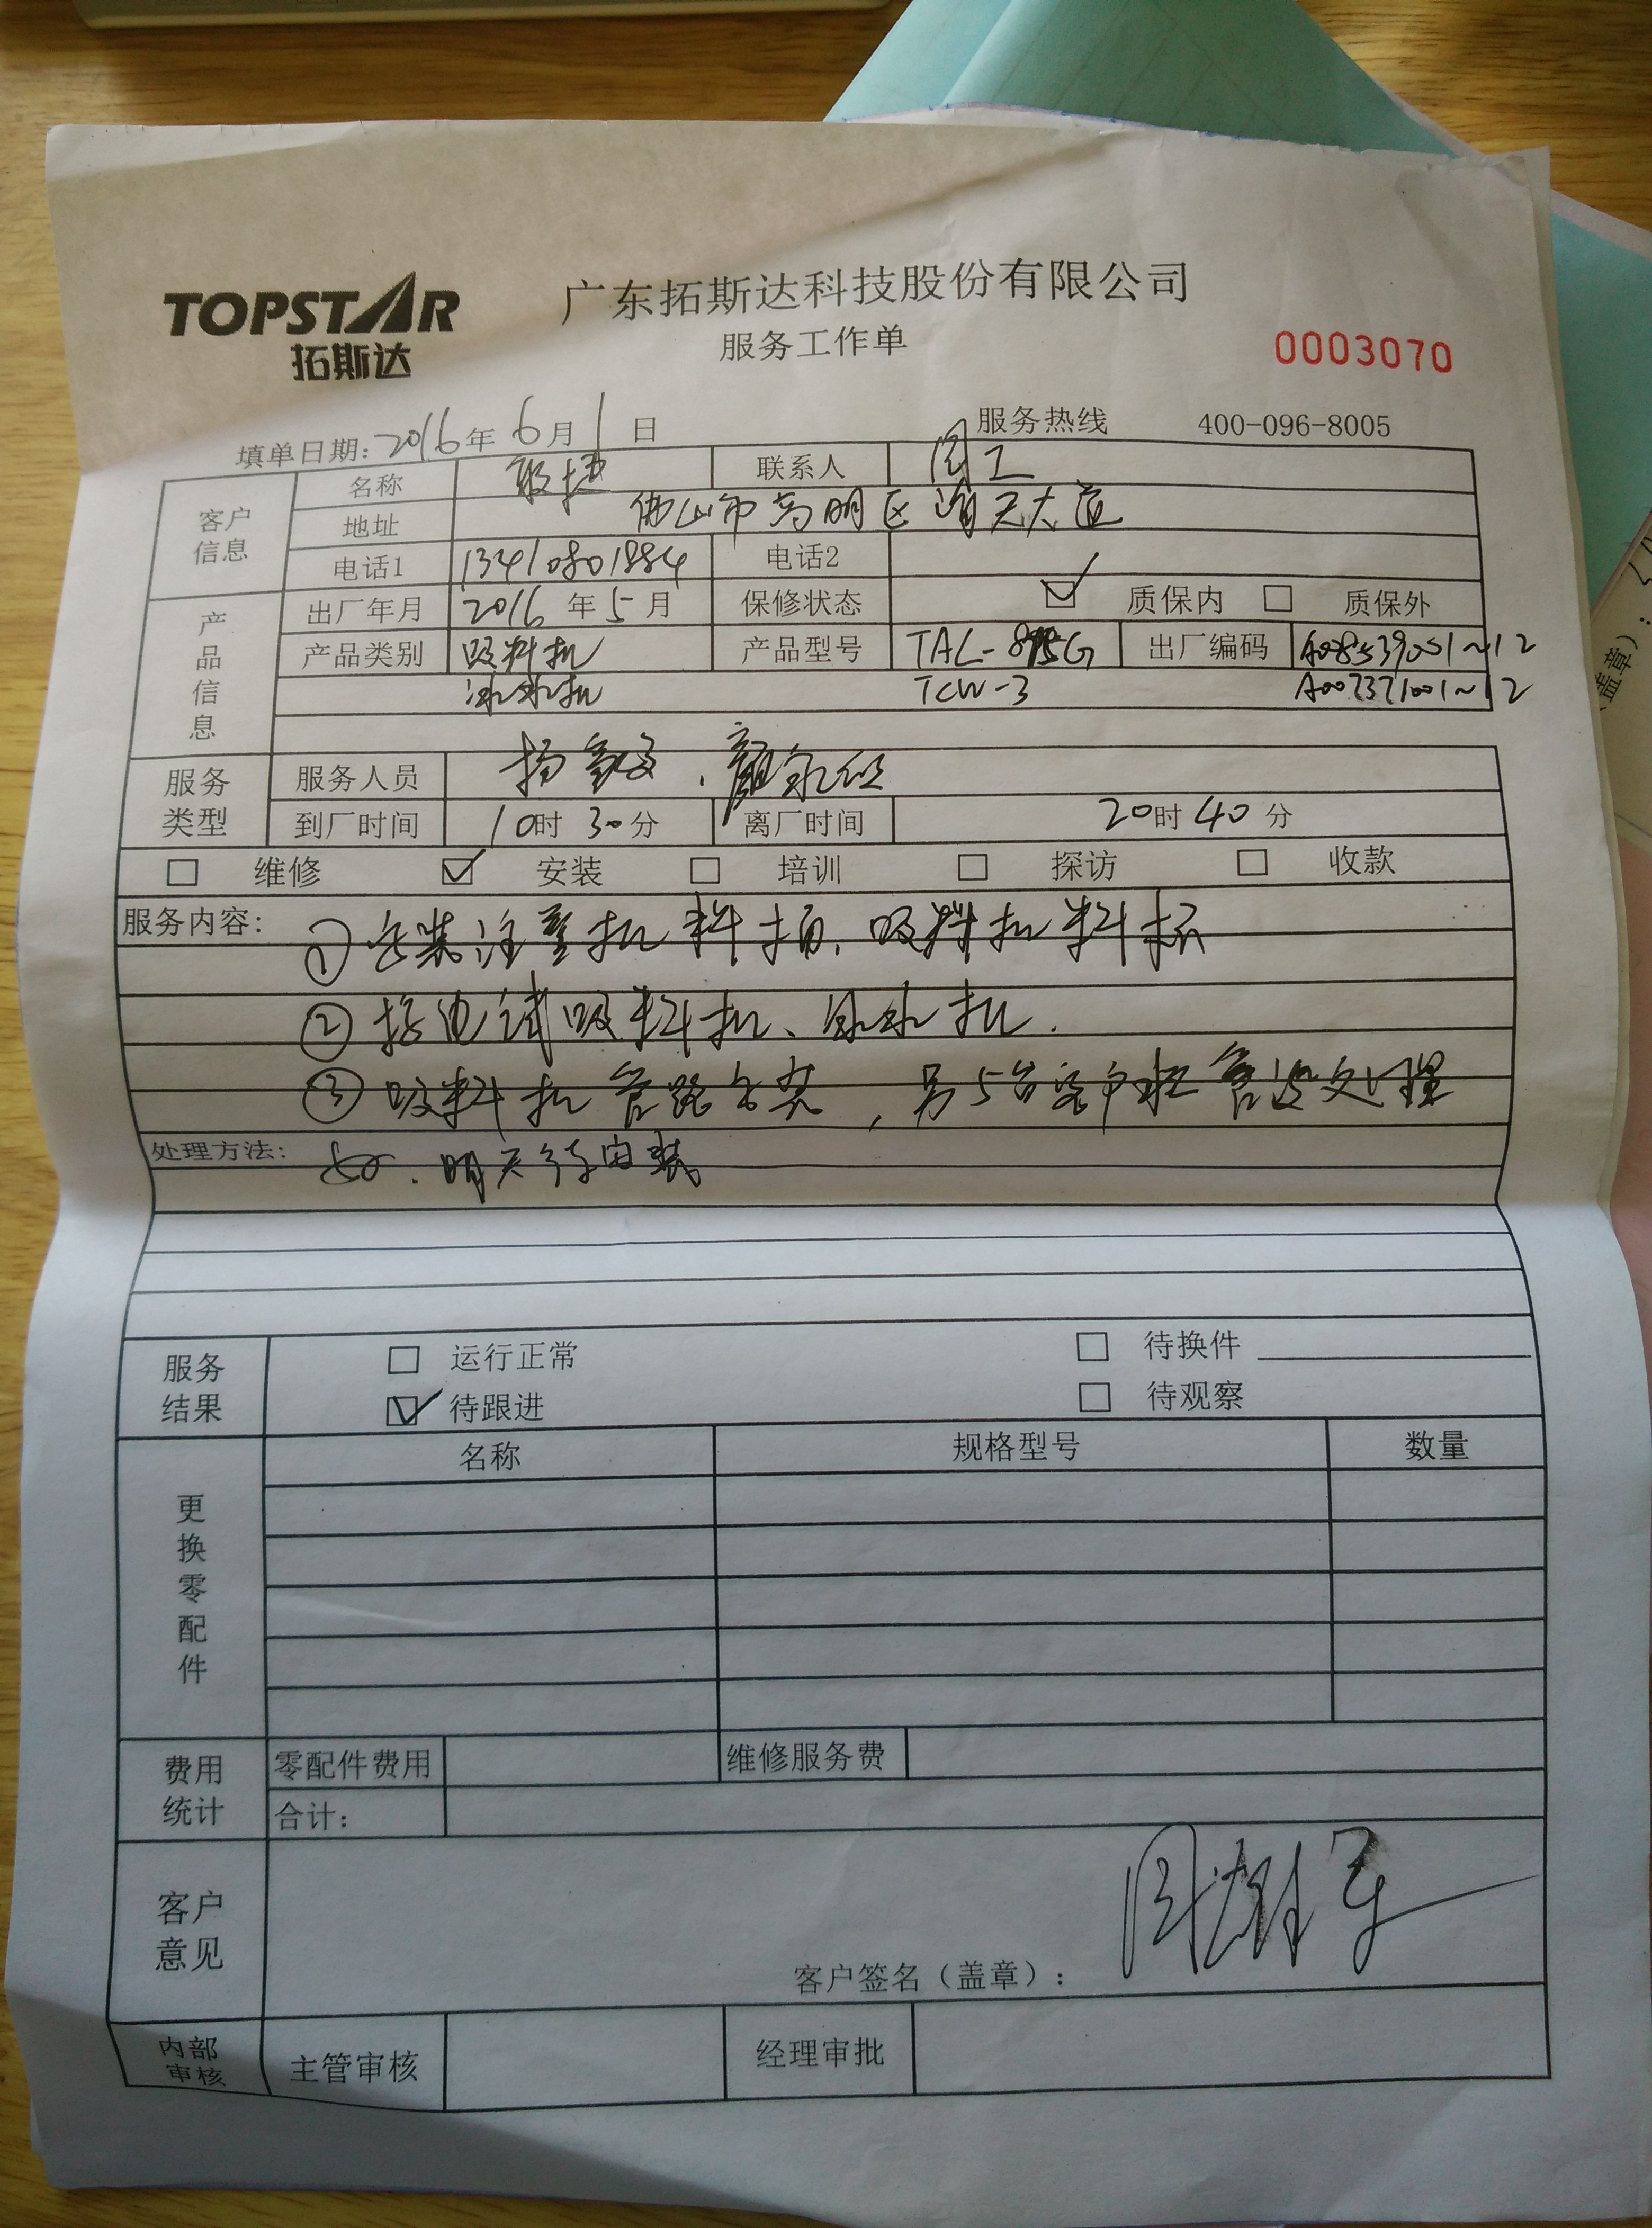 TOPSTAR
拓斯达
广东拓斯达科技股份有限公司
服务工作单
0003070
填单日期: 2016年 6月 1日
服务热线 400-096-8005
客户信息
名称 敏捷 联系人 周工
地址 佛山市高明区 大道
电话1 13410801884 电话2
产品信息
出厂年月 2016年5月 保修状态 ☑ 质保内 □ 质保外
产品类别 吸料机 产品型号 TAL- 出厂编码
冰水机 TCW-3 A007371001~12
服务类型
服务人员 杨
到厂时间 10时 30分 离厂时间 20时 40分
□ 维修 ☑ 安装 □ 培训 □ 探访 □ 收款
服务内容: ①安装注塑机料桶、吸料机料杯
②接电 吸料机、冰水机.
③吸料机管路 , 另5台客户 管没处理
处理方法: 好. 明天 安装
服务结果
□ 运行正常 □ 待换件
☑ 待跟进 □ 待观察
更换零配件
名称 规格型号 数量
费用统计
零配件费用 维修服务费
合计:
客户意见
客户签名（盖章）: 周雄军
内部审核 主管审核 经理审批
盖章）: